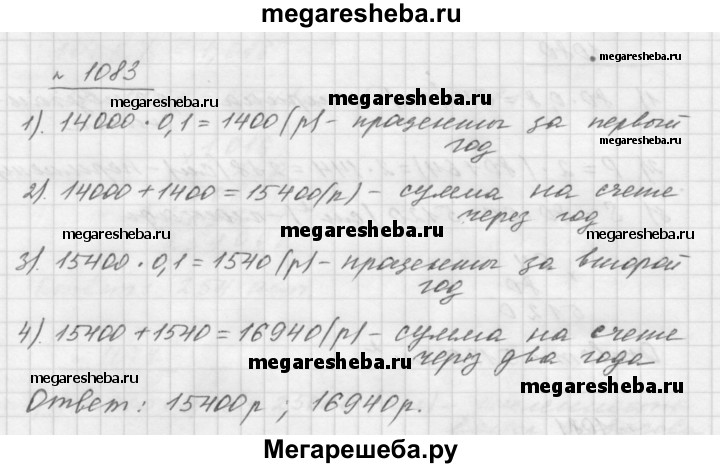 megaresheba.ru
№ 1083
megaresheba.ru
megaresheba.ru
megaresheba.ru
1). 14000 · 0,1 = 1400 (р) - проценты за первый
год
megaresheba.ru
megaresheba.ru
2). 14000 + 1400 = 15400 (р) - сумма на счете
через год
megaresheba.ru
megaresheba.ru
megaresheba.ru
3). 15400 · 0,1 = 1540 (р) - проценты за второй
год
4). 15400 + 1540 = 16940 (р) - сумма на счете
через два года
megaresheba.ru
megaresheba.ru
megaresheba.ru
Ответ: 15400р ; 16940р.
Мегарешеба.ру